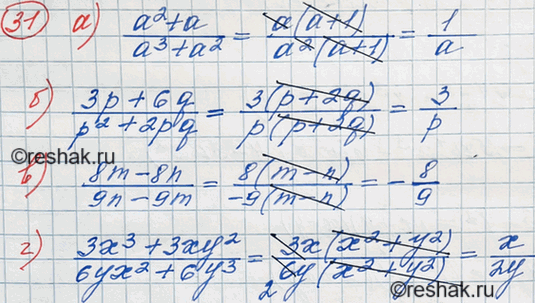 31 а) (a²+a)/(a³+a²) = a(a+1)/a²(a+1) = 1/a
б) (3p+6q)/(p²+2pq) = 3(p+2q)/p(p+2q) = 3/p
©reshak.ru
в) (8m-8n)/(9n-9m) = 8(m-n)/-9(m-n) = -8/9
©reshak.ru
г) (3x³+3xy²)/(6yx²+6y³) = 3x(x²+y²)/6y(x²+y²) = x/2y
2